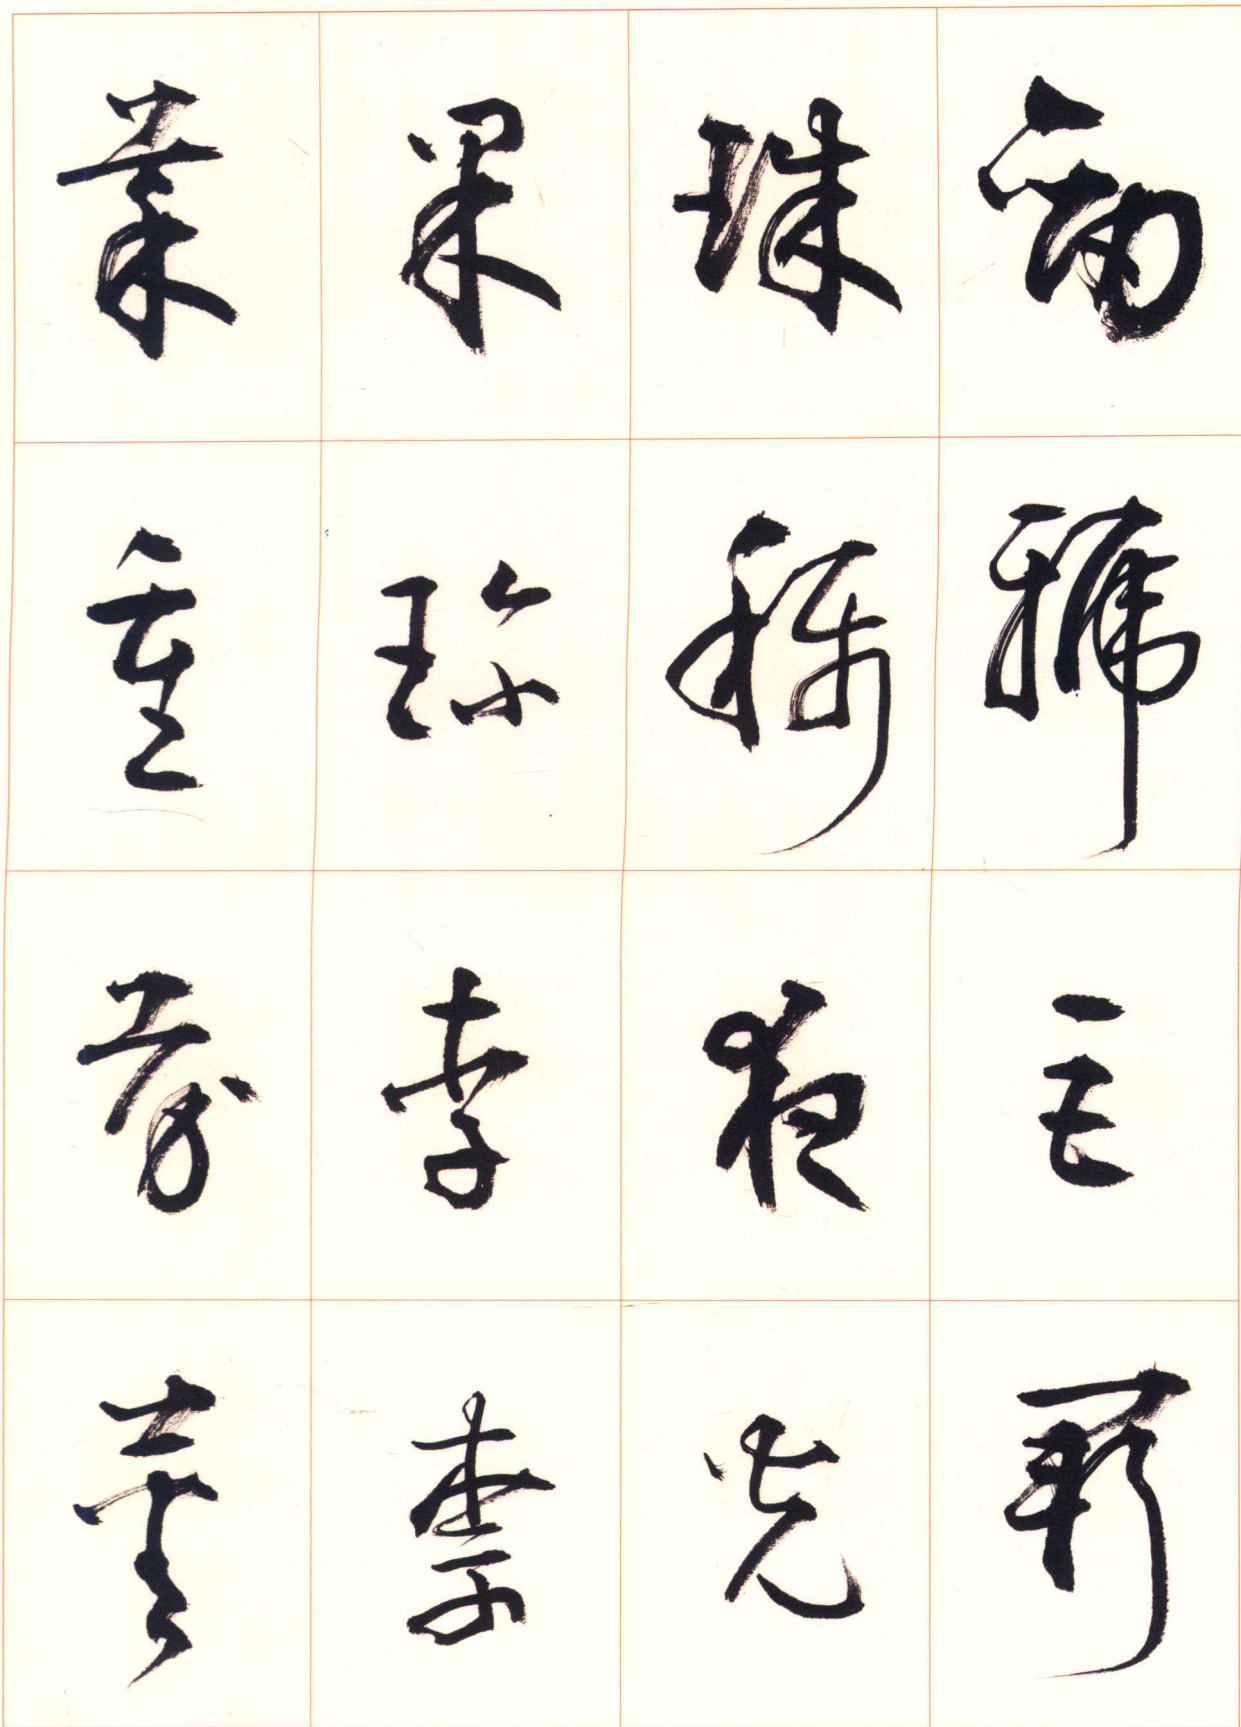 劍號巨闕
珠稱夜光
果珍李柰
菜重芥薑